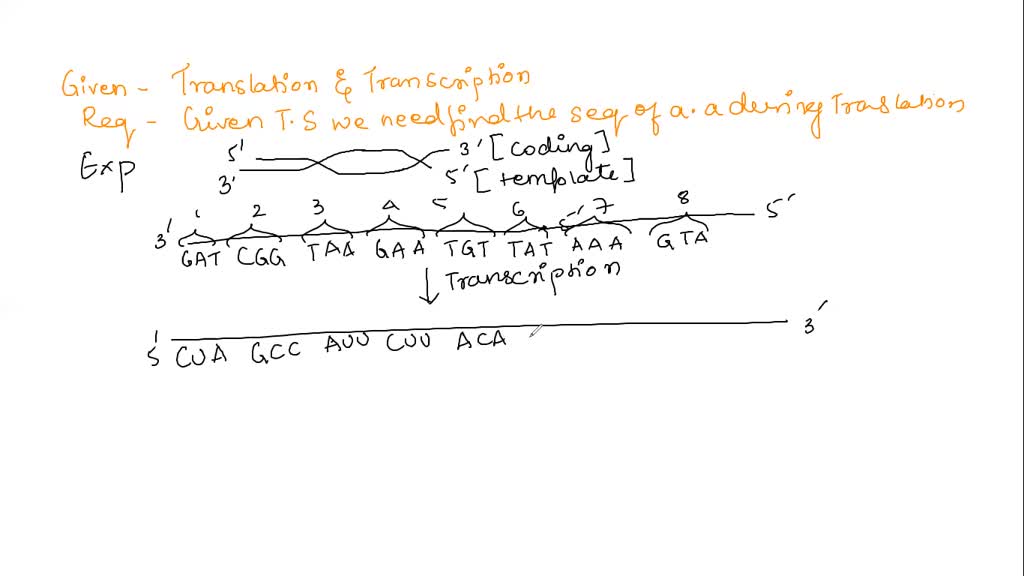 Given - Translation & Transcription
Req - Given T.S we need find the seq of a.a during Translation
Exp
5' 3' [coding]
3' 5' [template]
1 2 3 4 5 6 5' 7 8
3' GAT CGG TAA GAA TGT TAT AAA GTA 5'
↓ Transcription
5' CUA GCC AUU CUU ACA 3'